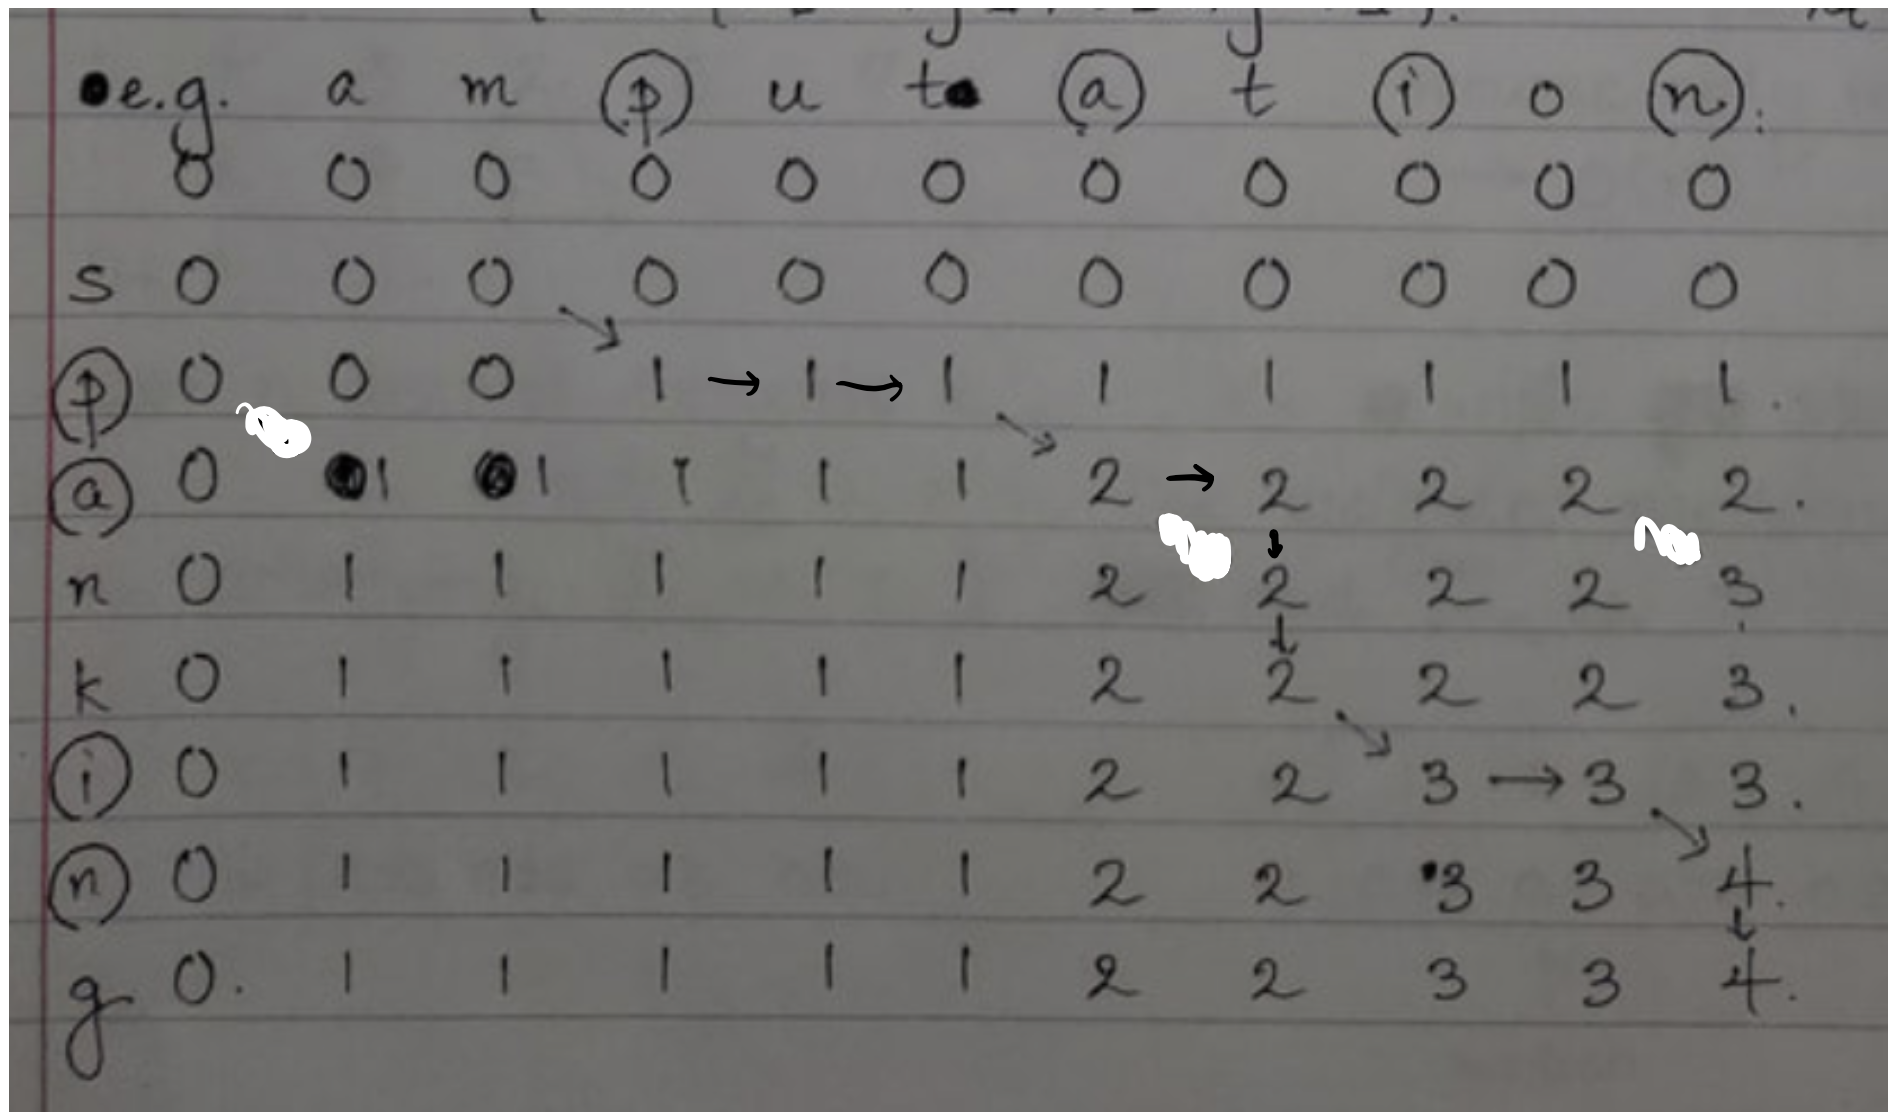 e.g. a m p u t a t i o n :
0 0 0 0 0 0 0 0 0 0 0
s 0 0 0 0 0 0 0 0 0 0 0
p 0 0 0 1 → 1 → 1 1 1 1 1 1 .
a 0 1 1 1 1 1 2 → 2 2 2 2 .
n 0 1 1 1 1 1 2 2 2 2 3
k 0 1 1 1 1 1 2 2 2 2 3 .
i 0 1 1 1 1 1 2 2 3 → 3 3 .
n 0 1 1 1 1 1 2 2 3 3 4 .
g 0 . 1 1 1 1 1 2 2 3 3 4 .